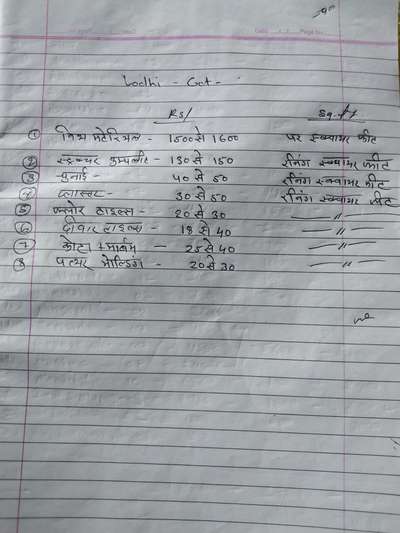 Lodhi - Cat -
Rs/ Sq. ft
① विथ मटेरियल - 1500 से 1600 पर स्क्वायर फीट
② स्ट्रक्चर कम्पलीट - 130 से 150 रनिंग स्क्वायर फीट
③ चुनाई - 40 से 50 रनिंग स्क्वायर फीट
④ प्लास्टर - 30 से 50 रनिंग स्क्वायर फीट
⑤ फ्लोर टाइल्स - 20 से 30 —〃—
⑥ दीवार टाइल्स - 18 से 40 —〃—
⑦ कोटा + मार्बल - 25 से 40 —〃—
⑧ पत्थर मोल्डिंग - 20 से 30 —〃—